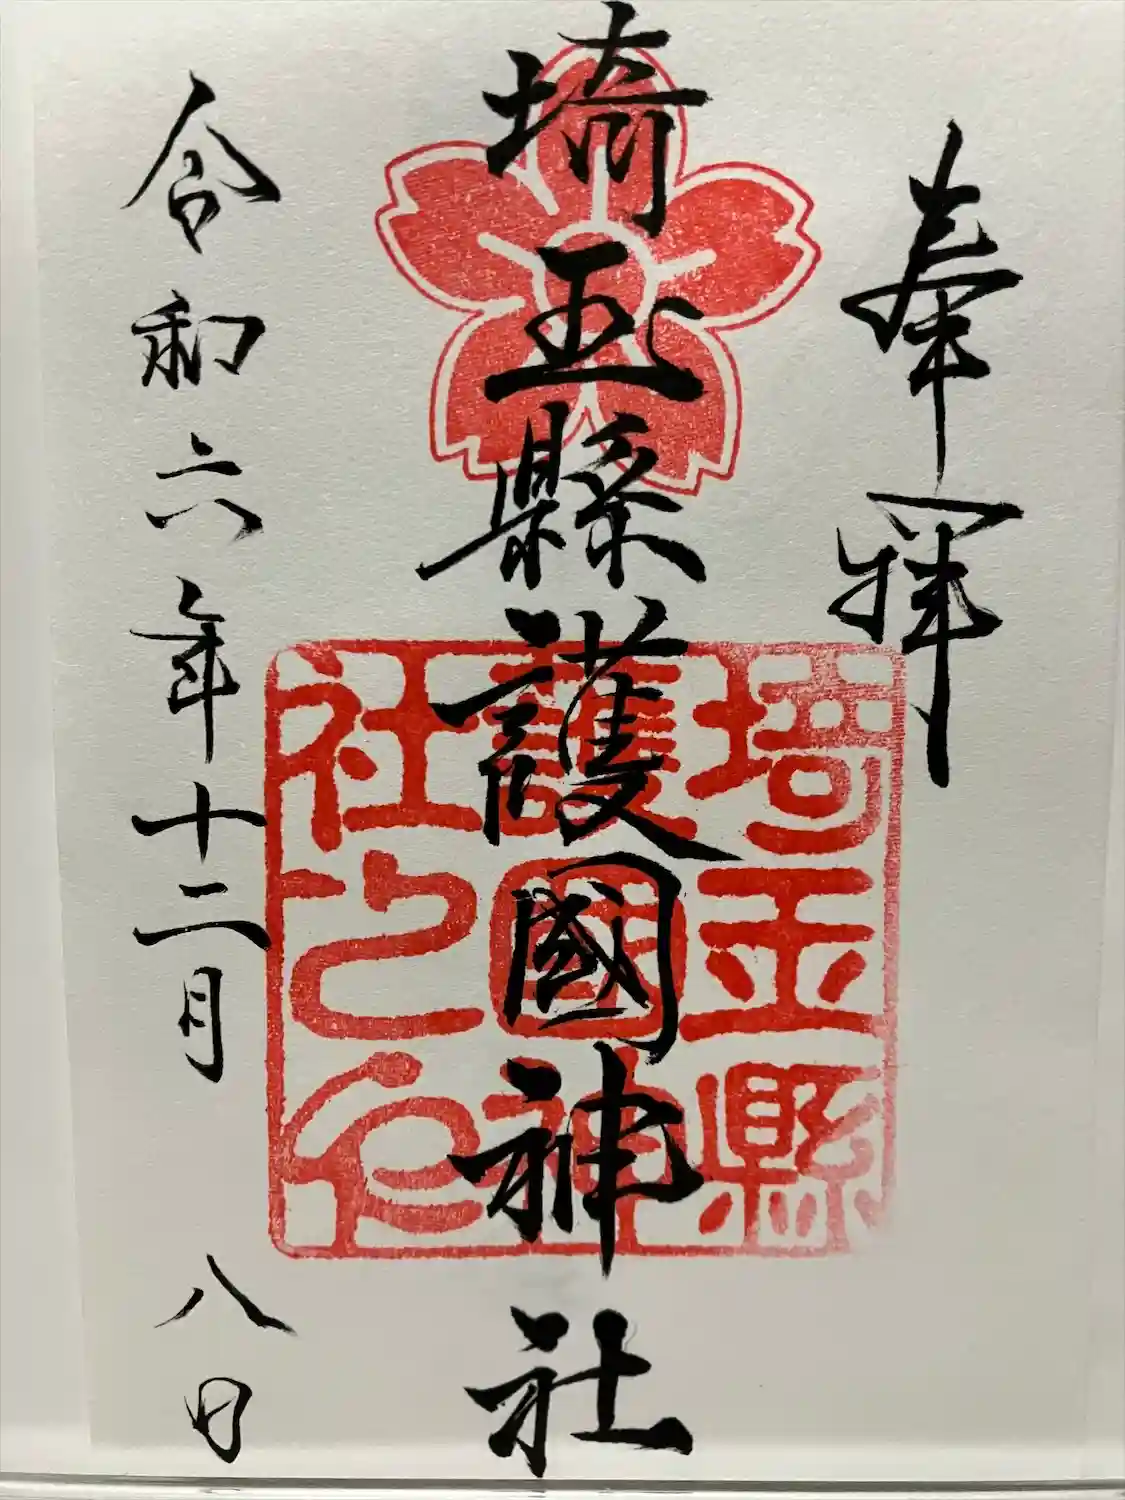 奉拝
埼玉縣護國神社
埼玉縣
護國神
社之印
令和六年十二月 八日